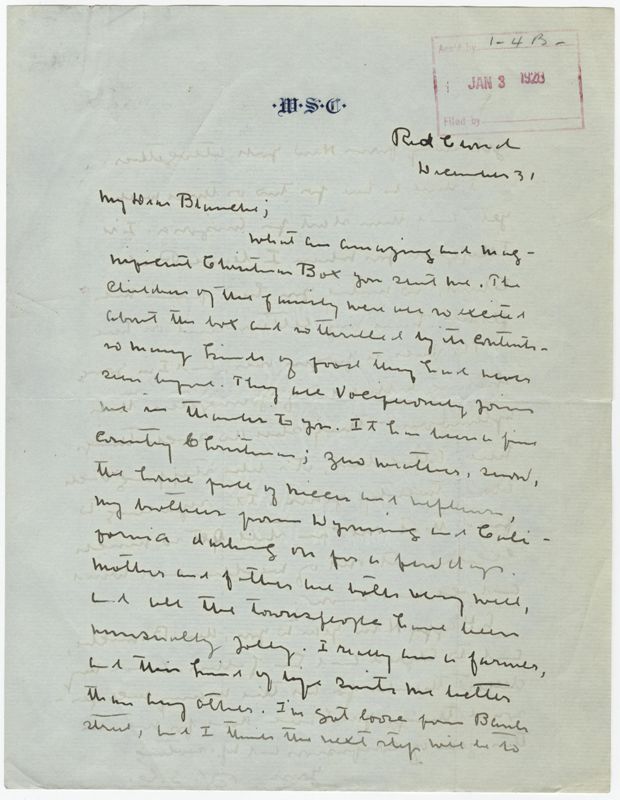 1-4 B-
Ans'd by
JAN 3 1928
Filed by
·W·S·C·
Red Cloud
December 31
My Dear Blanche;
What an amazing and mag-
nificent Christmas Box you sent me. The
children of the family were all so excited
about the box and so thrilled by its contents-
so many kinds of food they had never
seen before. They all vociferously join
me in thanks to you. It has been a fine
country Christmas; zero weather, snow,
the house full of nieces and nephews,
my brothers from Wyoming and Cali-
fornia dashing on for a few days.
Mother and father are both very well,
and all the townspeople have been
unusually jolly. I really am a farmer,
and this kind of life suits me better
than any other. I've got loose from Bank
street, and I think the next step will be to